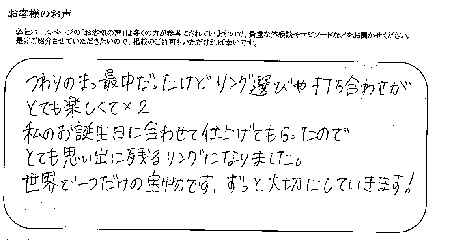 お客様のお声
つわりのまっ最中だったけどリング選びや打ち合わせが
とても楽しくて×2
私のお誕生日に合わせて仕上げてもらったので
とても思い出に残るリングになりました。
世界で一つだけの宝物です。ずっと大切にしていきます!